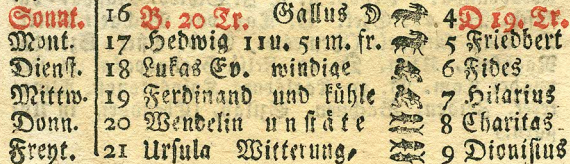 Sonnt. 16 B. 20 Tr. Gallus D 4 D 19. Tr.
Mont. 17 Hedwig 11u. 51m. fr. 5 Friedbert
Dienst. 18 Lukas Ev. windige 6 Fides
Mittw. 19 Ferdinand und kühle 7 Hilarius
Donn. 20 Wendelin unstäte 8 Charitas
Freyt. 21 Ursula Witterung, 9 Dionisius